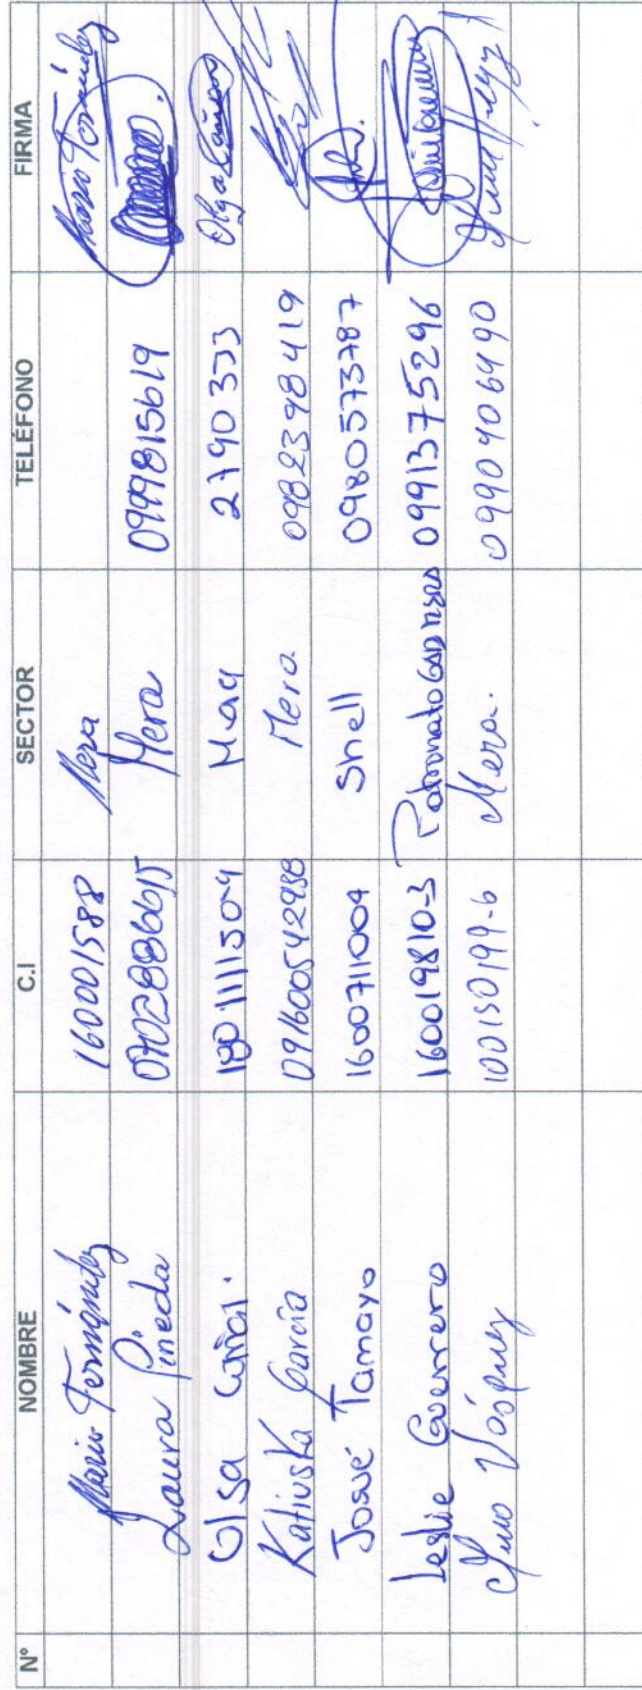 N° NOMBRE C.I SECTOR TELÉFONO FIRMA
Mario Fernández 160001588 Mera Mario Fernández
Laura Pineda Mera
Olga 180111150-4 2790333 Olga
Katiuska García 091600542938 Mera 0982398419
Josué Tamayo 1600711004 Shell 0980573787
Leslie Guerrero 160019810-3 Patronato 0991375296
Vásquez 100150199-6 Mera. 0990406490